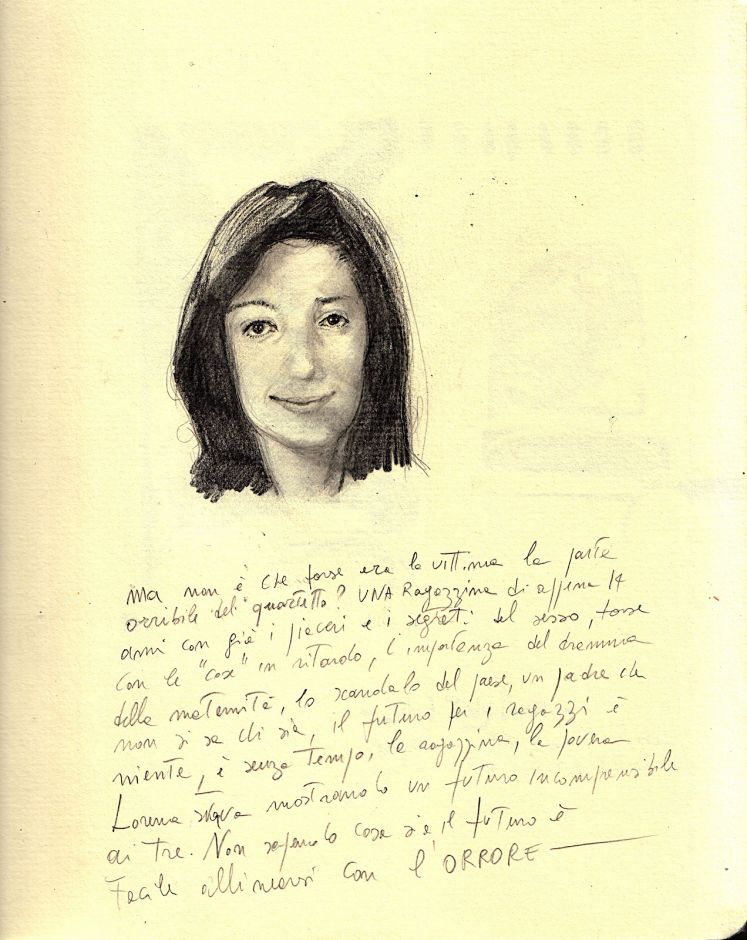 Ma non è che forse era la vittima la parte
orribile del quartetto? UNA Ragazzina di appena 14
anni con già i piaceri e i segreti del sesso, forse
con le "cose" in ritardo, l'importanza del dramma
della maternità, lo scandalo del paese, un padre che
non si sa chi sia, il futuro per i ragazzi è
niente, è senza tempo, la ragazzina, la povera
Lorena stava mostrando un futuro incomprensibile
ai tre. Non sapendo cosa sia il futuro è
facile allinearsi con l'ORRORE